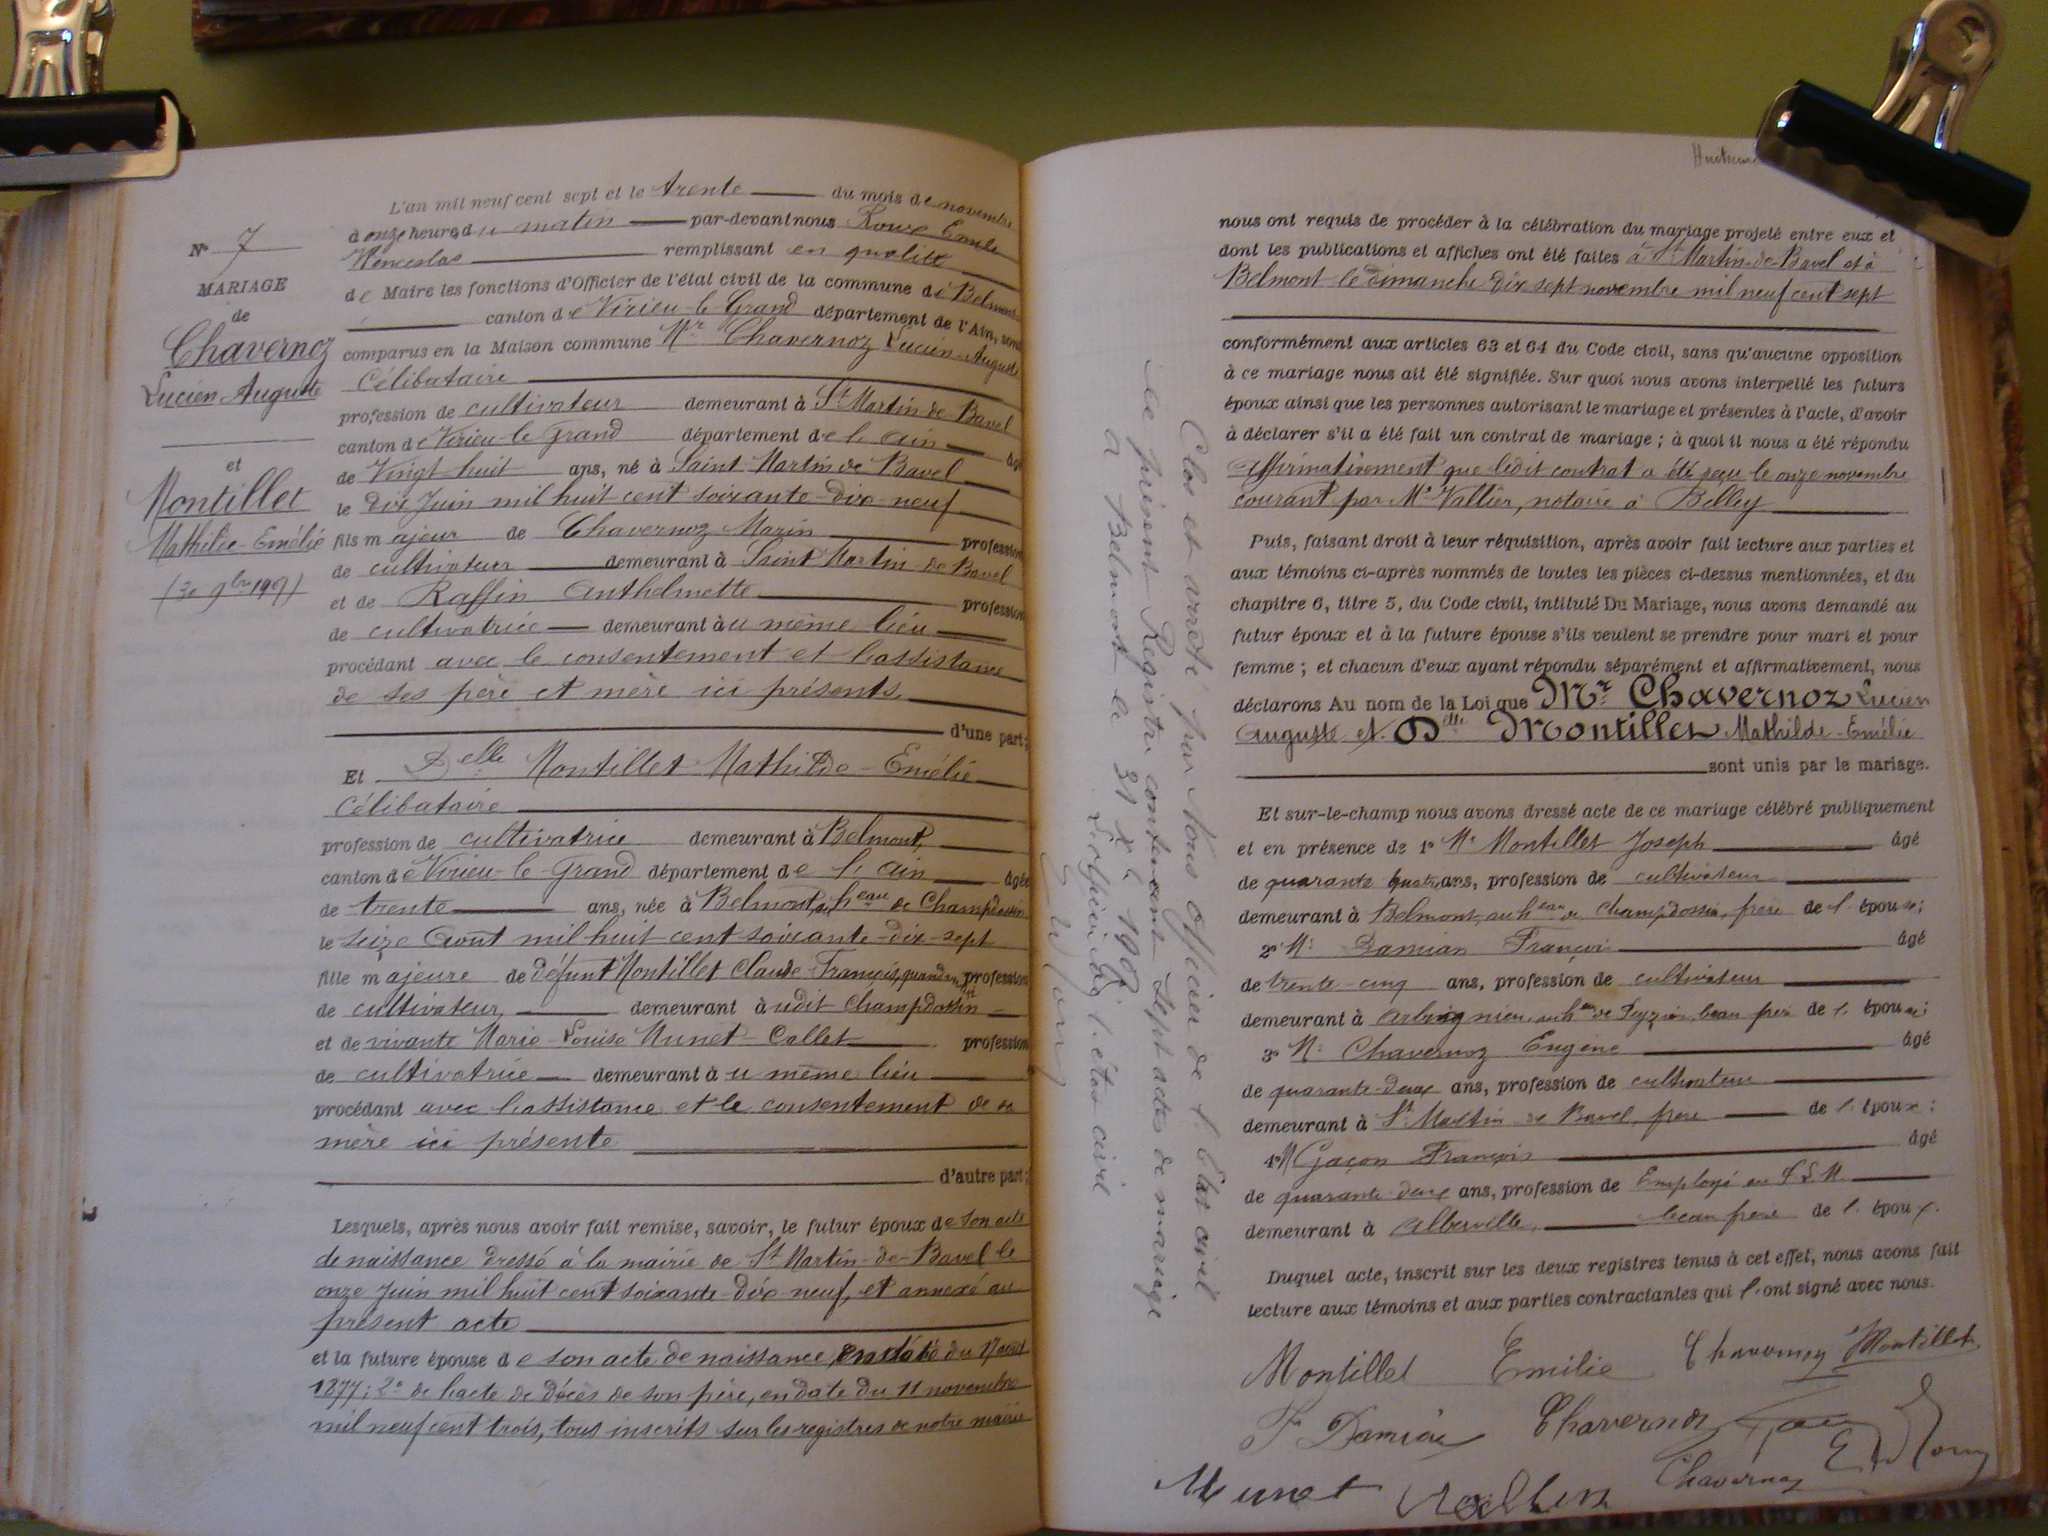 L'an mil neuf cent sept et le trente du mois de novembre
à onze heures du matin par-devant nous Roux Emile
Wenceslas remplissant en qualité
de Maire les fonctions d'Officier de l'état civil de la commune de Belmont
canton de Virieu-le-Grand département de l'Ain, sont
comparus en la Maison commune Mr Chavernoz Lucien-Auguste
Célibataire
profession de cultivateur demeurant à St Martin de Bavel
canton de Virieu-le-Grand département de l'ain âgé
de Vingt huit ans, né à Saint Martin de Bavel
le dix Juin mil huit cent soixante-dix-neuf
fils majeur de Chavernoz Marin profession
de cultivateur demeurant à Saint Martin-de-Bavel
et de Raffin Anthelmette profession
de cultivatrice demeurant au même lieu
procédant avec le consentement et l'assistance
de ses père et mère ici présents,
d'une part;
Et Delle Montillet Mathilde-Emélie
Célibataire
profession de cultivatrice demeurant à Belmont,
canton de Virieu-le-Grand département de l'ain âgée
de trente ans, née à Belmont, au heau de Champdossin
le seize Août mil huit cent soixante-dix-sept
fille majeure de défunt Montillet Claude-François, quand vivait profession
de cultivateur, demeurant audit Champdossin
et de vivante Marie-Louise Munet-Collet profession
de cultivatrice demeurant au même lieu
procédant avec l'assistance et le consentement de sa
mère ici présente
d'autre part;
Lesquels, après nous avoir fait remise, savoir, le futur époux de son acte
de naissance dressé à la mairie de St Martin-de-Bavel le
onze Juin mil huit cent soixante-dix-neuf, et annexé au
présent acte
et la future épouse de son acte de naissance, en date du 17 août
1877; 2° de l'acte de décès de son père, en date du 11 novembre
mil neuf cent trois, tous inscrits sur les registres de notre mairie
N° 7
MARIAGE
de
Chavernoz
Lucien-Auguste
et
Montillet
Mathilde-Emélie
(30 9bre 1907)
nous ont requis de procéder à la célébration du mariage projeté entre eux et
dont les publications et affiches ont été faites à St Martin-de-Bavel et à
Belmont le dimanche dix sept novembre mil neuf cent sept
conformément aux articles 63 et 64 du Code civil, sans qu'aucune opposition
à ce mariage nous ait été signifiée. Sur quoi nous avons interpellé les futurs
époux ainsi que les personnes autorisant le mariage et présentes à l'acte, d'avoir
à déclarer s'il a été fait un contrat de mariage; à quoi il nous a été répondu
affirmativement que ledit contrat a été reçu le onze novembre
courant par Me Vallier, notaire à Belley
Puis, faisant droit à leur réquisition, après avoir fait lecture aux parties et
aux témoins ci-après nommés de toutes les pièces ci-dessus mentionnées, et du
chapitre 6, titre 5, du Code civil, intitulé Du Mariage, nous avons demandé au
futur époux et à la future épouse s'ils veulent se prendre pour mari et pour
femme; et chacun d'eux ayant répondu séparément et affirmativement, nous
déclarons Au nom de la Loi que Mr Chavernoz Lucien
Auguste et Dlle Montillet Mathilde-Emélie
sont unis par le mariage.
Et sur-le-champ nous avons dressé acte de ce mariage célébré publiquement
et en présence de 1° Mr Montillet Joseph âgé
de quarante quatre ans, profession de cultivateur
demeurant à Belmont, au heau de Champdossin, frère de l'épouse;
2° Mr Damian François âgé
de trente-cinq ans, profession de cultivateur
demeurant à Arbignieu, au heau de Peyzieu beau frère de l'épouse;
3° Mr Chavernoz Eugène âgé
de quarante-deux ans, profession de cultivateur
demeurant à St Martin de Bavel, frère de l'époux;
4° M Gaçon François âgé
de quarante deux ans, profession de Employé au P.L.M.
demeurant à Alberville, beau frère de l'époux.
Duquel acte, inscrit sur les deux registres tenus à cet effet, nous avons fait
lecture aux témoins et aux parties contractantes qui l'ont signé avec nous.
Montillet Emilie Chavernoz Montillet
F Damian Chavernoz
Munet Chavernoz E Roux
Clos et arrêté par Nous Officier de l'Etat civil
ce présent Registre contenant sept actes de mariage
à Belmont le 31 Xbre 1907
L'officier de l'état civil
E Roux